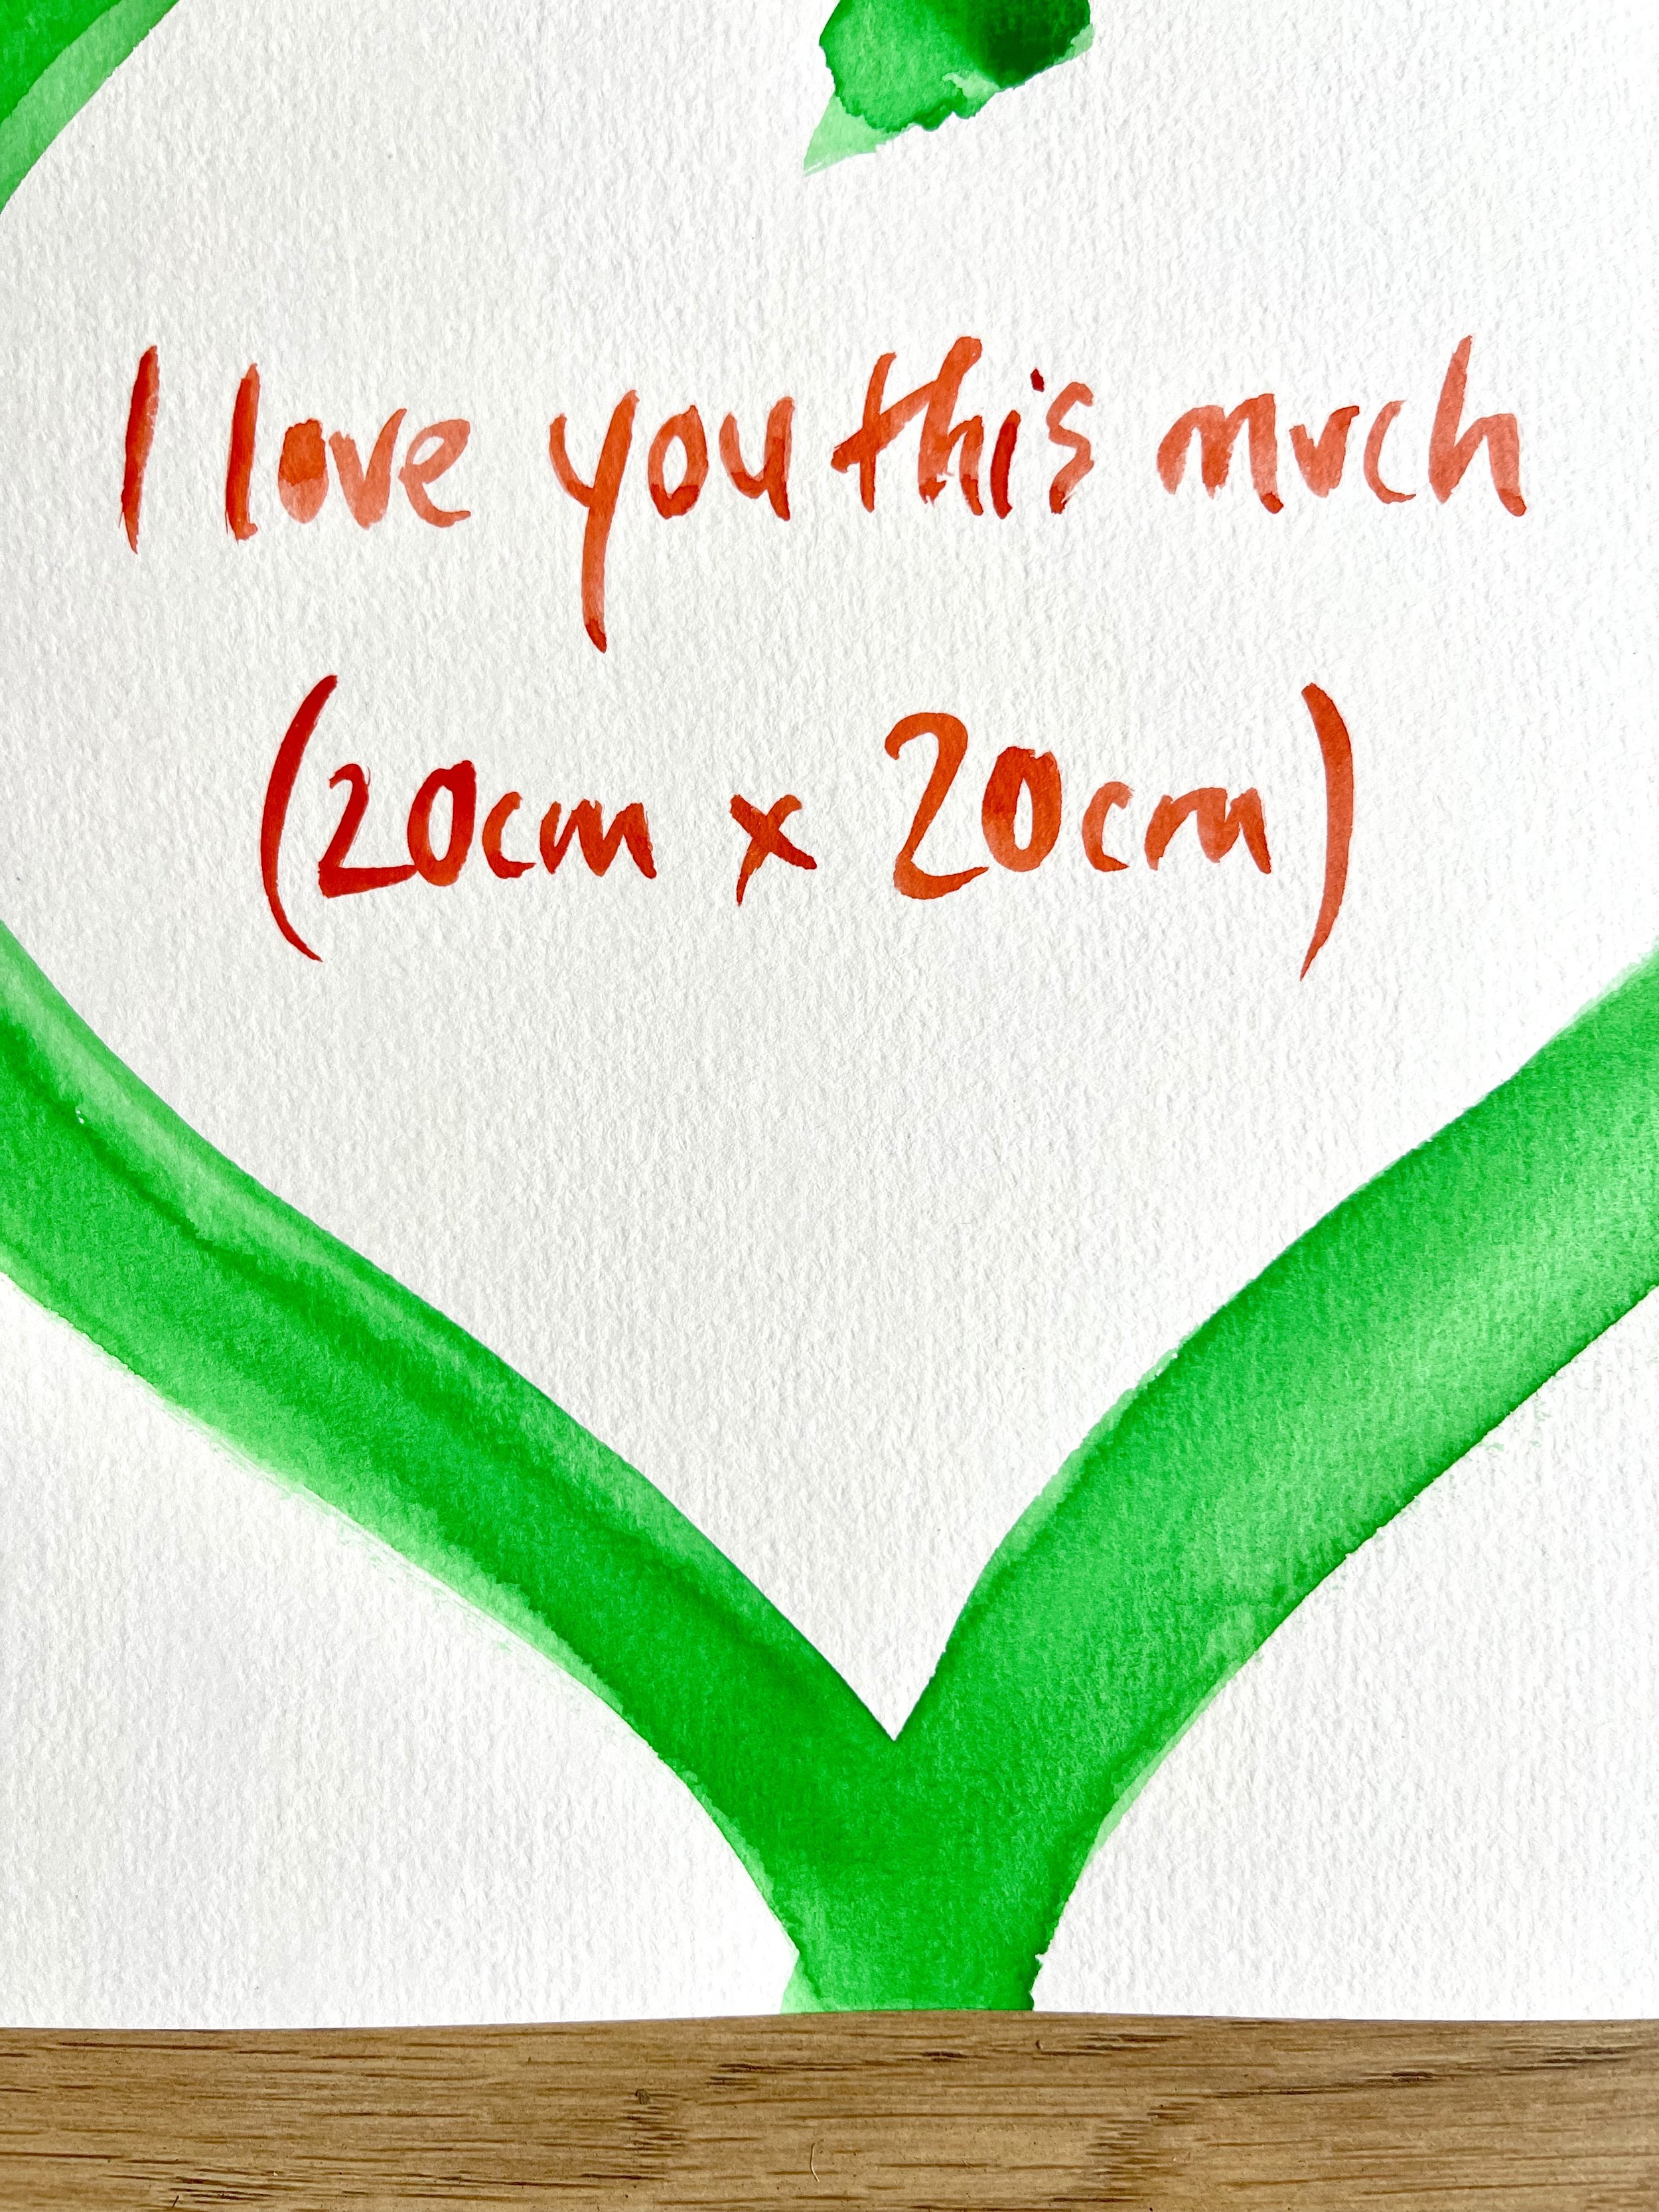 I love you this much
(20cm x 20cm)